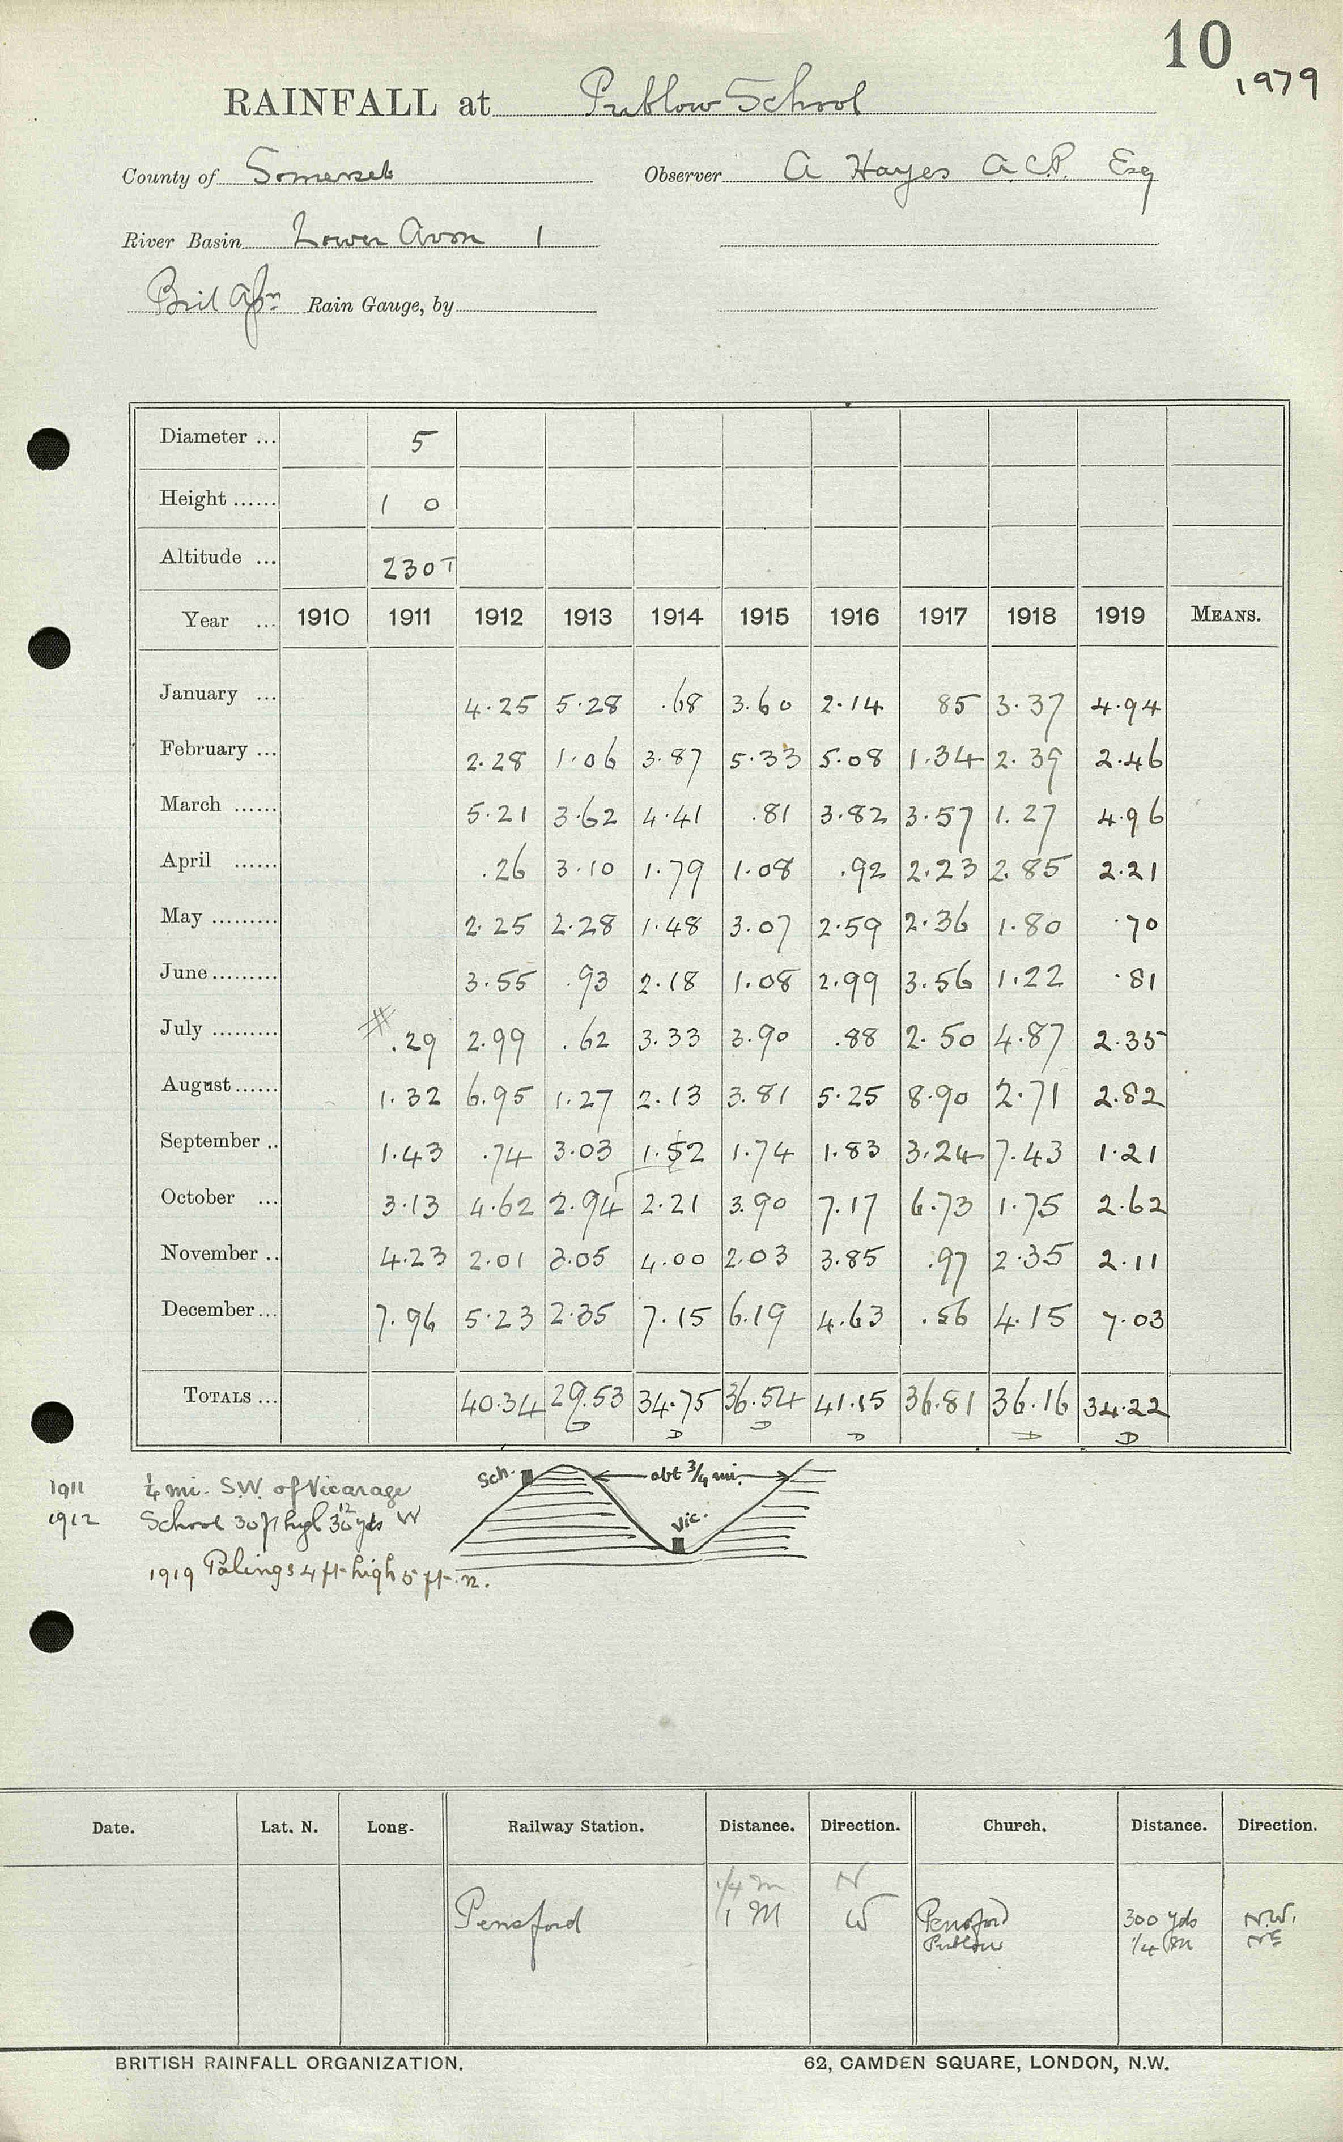 10
1979
RAINFALL at Publow School
County of Somerset Observer A Hayes A.C.P. Esq
River Basin Lower Avon 1
Rain Gauge, by
Diameter ... 5
Height ...... 1 0
Altitude ... 230 T
Year ... 1910 1911 1912 1913 1914 1915 1916 1917 1918 1919 MEANS.
January ... 4.25 5.28 .68 3.60 2.14 85 3.37 4.94
February ... 2.28 1.06 3.87 5.33 5.08 1.34 2.39 2.46
March ...... 5.21 3.62 4.41 .81 3.82 3.57 1.27 4.96
April ...... .26 3.10 1.79 1.08 .92 2.23 2.85 2.21
May ......... 2.25 2.28 1.48 3.07 2.59 2.36 1.80 .70
June ......... 3.55 .93 2.18 1.08 2.99 3.56 1.22 .81
July ......... # .29 2.99 .62 3.33 3.90 .88 2.50 4.87 2.35
August ...... 1.32 6.95 1.27 2.13 3.81 5.25 8.90 2.71 2.82
September .. 1.43 .74 3.03 1.52 1.74 1.83 3.24 7.43 1.21
October ... 3.13 4.62 2.94 2.21 3.90 7.17 6.73 1.75 2.62
November .. 4.23 2.01 3.05 4.00 2.03 3.85 .97 2.35 2.11
December ... 7.96 5.23 2.35 7.15 6.19 4.63 .56 4.15 7.03
TOTALS ... 40.34 29.53 34.75 36.54 41.15 36.81 36.16 34.22
D D D D D D
Sch. abt 3/4 mi.
1911 1/4 mi. S.W. of Vicarage
1912 School 30 ft high 12 yds W
Vic.
1919 Palings 4 ft high 5 ft. n.
Date. Lat. N. Long. Railway Station. Distance. Direction. Church. Distance. Direction.
1/4 m N
Pensford 1 M W Pensford 300 yds N.W.
Publow 1/4 m NE
BRITISH RAINFALL ORGANIZATION. 62, CAMDEN SQUARE, LONDON, N.W.